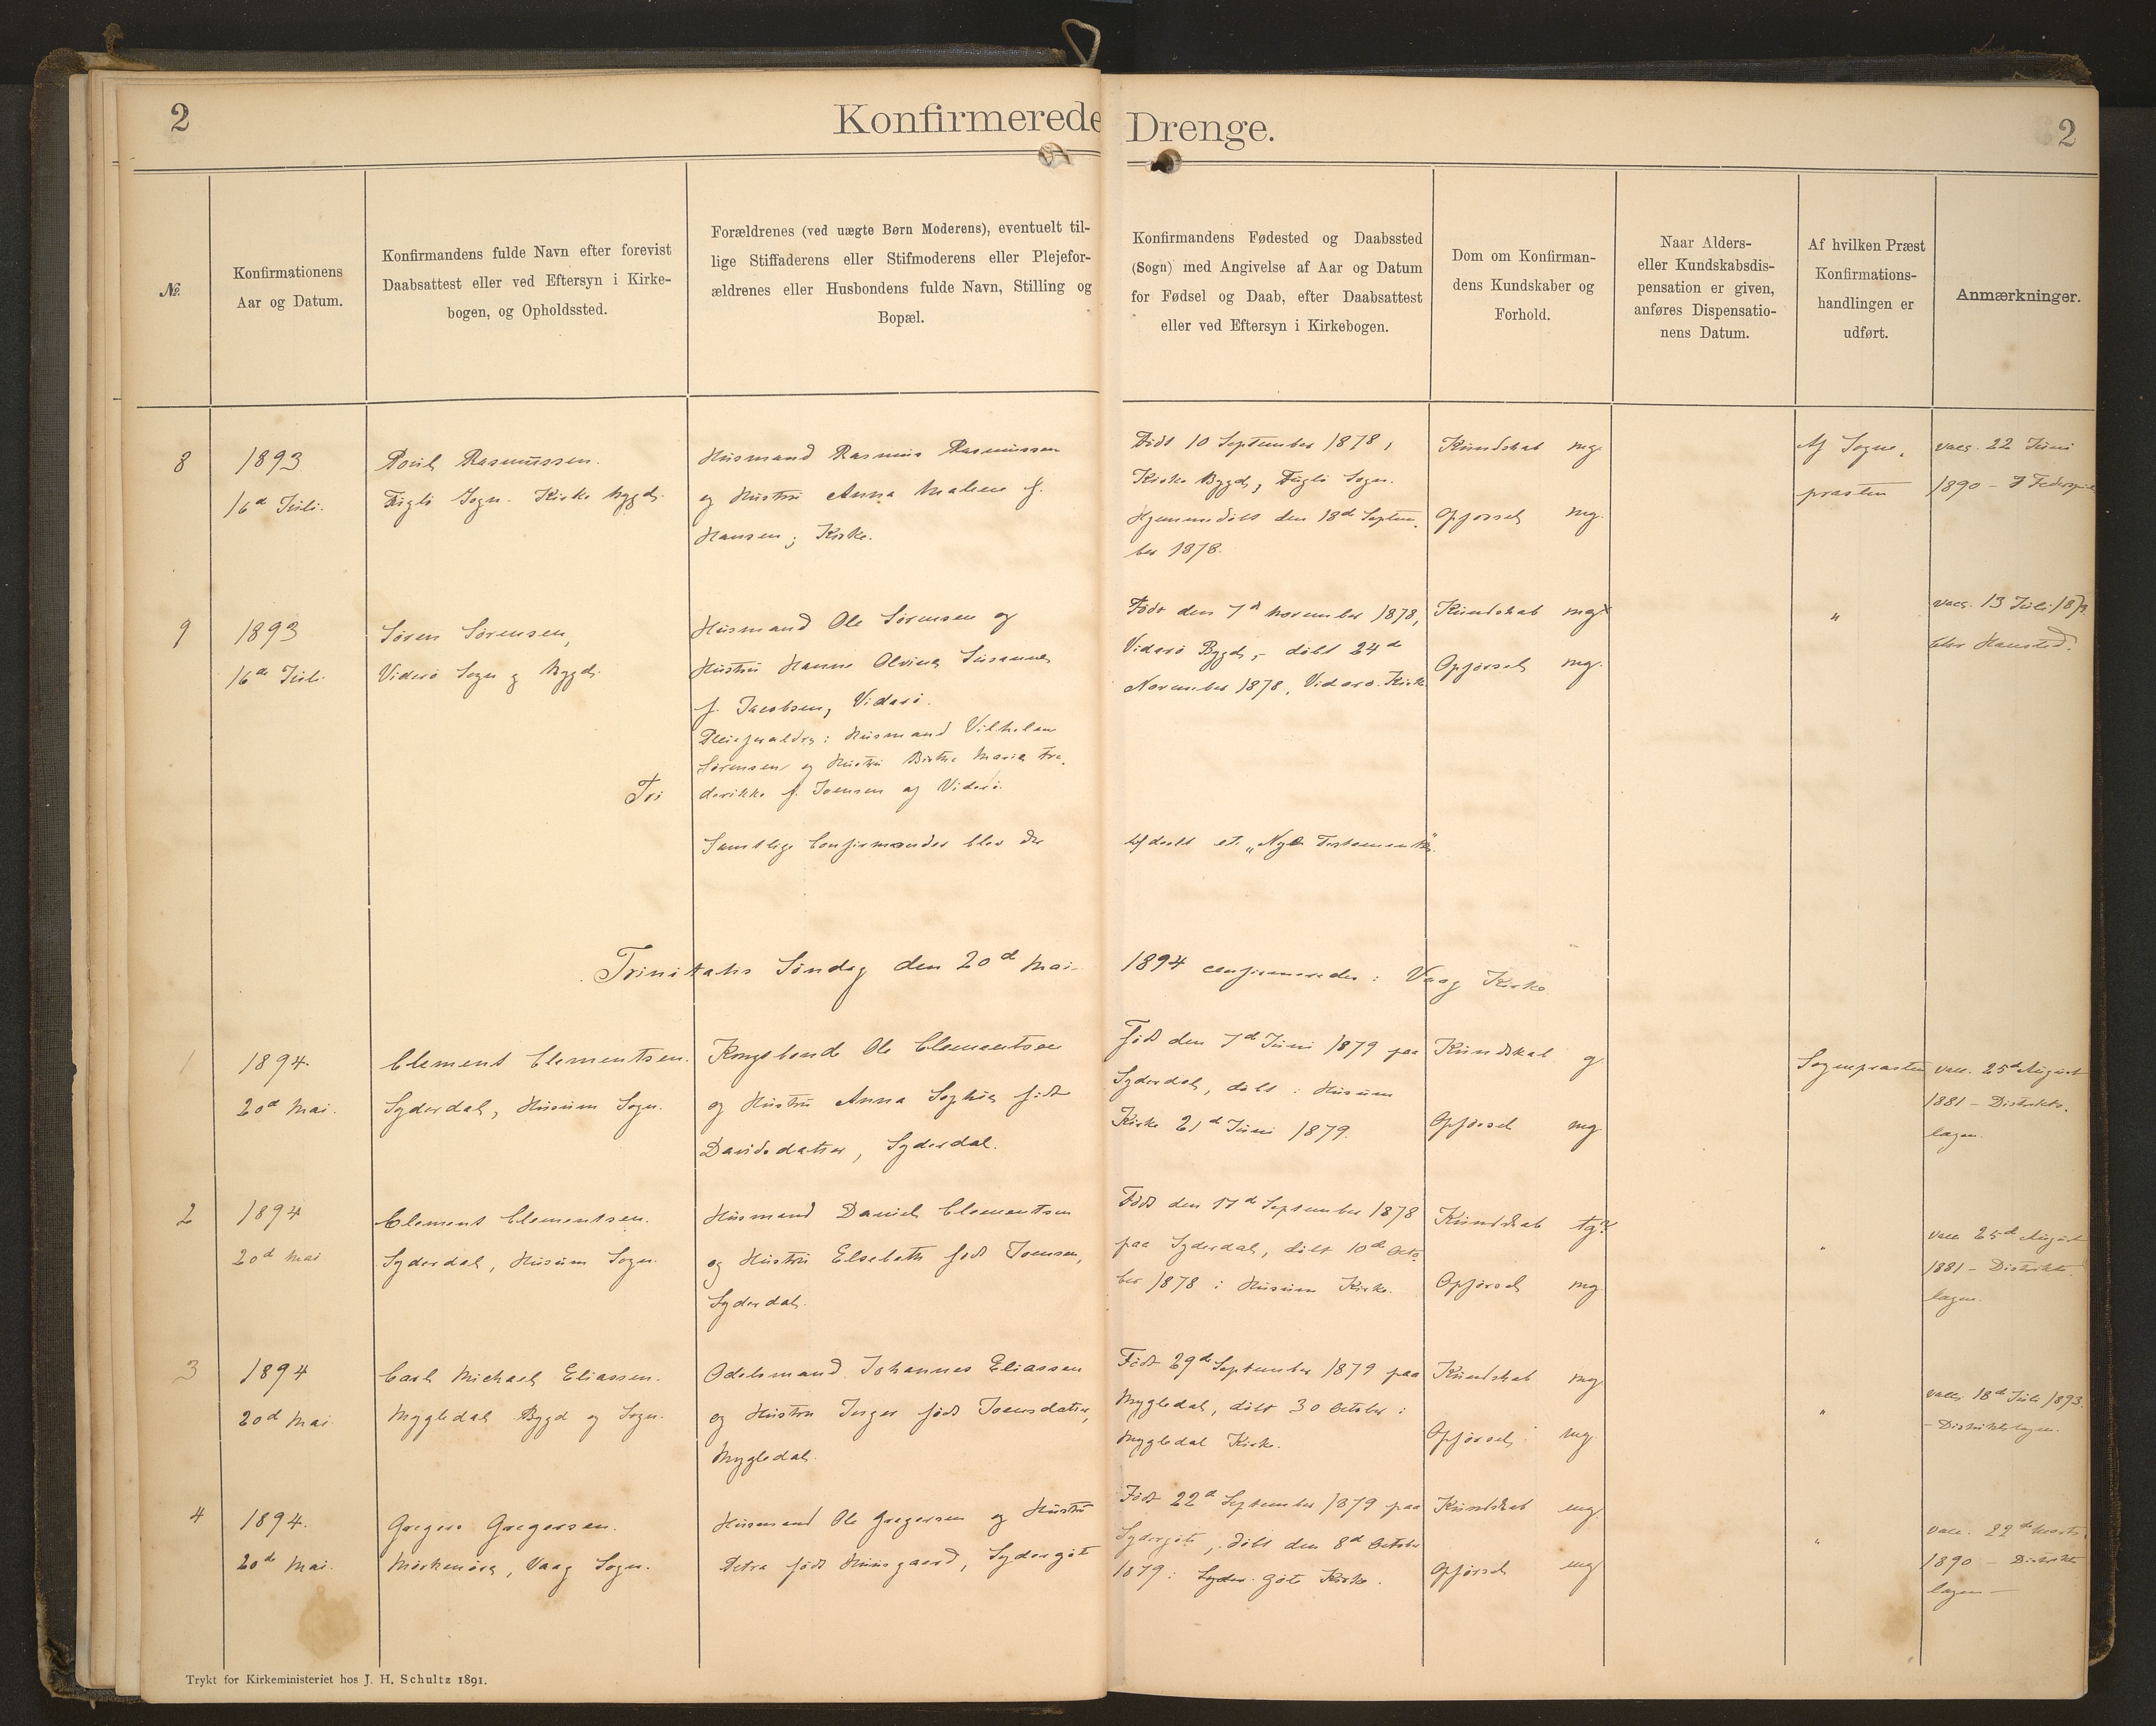 2
Konfirmerede Drenge.
2
№
Konfirmationens
Aar og Datum.
Konfirmandens fulde Navn efter forevist
Daabsattest eller ved Eftersyn i Kirke-
bogen, og Opholdssted.
Forældrenes (ved uægte Børn Moderens), eventuelt til-
lige Stiffaderens eller Stifmoderens eller Plejefor-
ældrenes eller Husbondens fulde Navn, Stilling og
Bopæl.
Konfirmandens Fødested og Daabssted
(Sogn) med Angivelse af Aar og Datum
for Fødsel og Daab, efter Daabsattest
eller ved Eftersyn i Kirkebogen.
Dom om Konfirman-
dens Kundskaber og
Forhold.
Naar Alders-
eller Kundskabsdis-
pensation er given,
anføres Dispensatio-
nens Datum.
Af hvilken Præst
Konfirmations-
handlingen er
udført.
Anmærkninger.
8
1893
16d Juli.
Poul Rasmussen.
Fuglö Sogn. Kirke Bygd.
Husmand Rasmus Rasmussen
og Hustru Anna Malene f.
Hansen, Kirke.
Född 10 September 1878,
Kirke Bygd, Fuglö Sogn.
Hjemmedöbt den 18de Septem-
ber 1878.
Kundskab mg
Opførsel mg.
Af Sogne-
præsten
vacc. 22 Juni
1890 –
9
1893
16de Juli
Sören Sörensen,
Viderö Sogn og Bygd.
Husmand Ole Sörensen og
Hustru Hanne Olvina Susanna
f. Jacobsen, Viderö.
Pleieforældre: Husmand Vilhelm
Sörensen og Hustru Birthe Maria Fre-
derikke f. Joensen af Viderö.
Födt den 7d November 1878,
Viderö Bygd, – döbt 24de
November 1878, Viderö Kirke
Kundskab mg
Opførsel mg.
"
vacc. 13 Juli
Tri
Samtlige Confirmander blev der
uddeelt et "Nyt Testamente".
Trinitatis Söndag den 20d Mai
1894 confirmerede i Vaag Kirke
1
1894.
20d Mai.
Clement Clementsen.
Syderdal, Husum Sogn.
Kongsbonde Ole Clementsen
og Hustru Anna Sophia född
Davidsdatter, Syderdal.
född den 7d Juni 1879 paa
Syderdal, döbt i Husum
Kirke 21d Juni 1879.
Kundskab g
Opførsel mg
Sognepræsten
vacc. 25d August
1881 – Distrikts-
lægen.
2
1894
20d Mai
Clement Clementsen.
Syderdal, Husum Sogn.
Husmand Daniel Clementsen
og Hustru Elsebeth född Joensen,
Syderdal.
Född den 17de September 1878
paa Syderdal, döbt 10de Octo-
ber 1878 i Husum Kirke.
Kundskab tg
Opførsel mg
"
vacc. 25d August
1881 – Distrikts-
lægen.
3
1894
20d Mai
Carl Michael Eliassen.
Mygledal Bygd og Sogn.
Odelsmand Johannes Eliassen
og Hustru Inger född Joensdatter,
Mygledal.
Född 29de September 1879 paa
Mygledal, döbt 30 October i
Mygledal Kirke.
Kundskab mg
Opførsel mg
"
vacc. 18d Juli 1893.
– Distriktslægen.
4
1894.
20de Mai.
Gregers Gregersen.
Mörkenöre, Vaag Sogn.
Husmand Ole Gregersen og Hustru
Petra född Huusgaard, Sydergöte
Född 22d September 1879 paa
Sydergöte, döbt den 8d October
1879 i Syder göte Kirke.
Kundskab mg.
Opførsel mg
"
vacc. 22de Marts
1890 – Distrikts
lægen –
Trykt for Kirkeministeriet hos J. H. Schultz 1891.